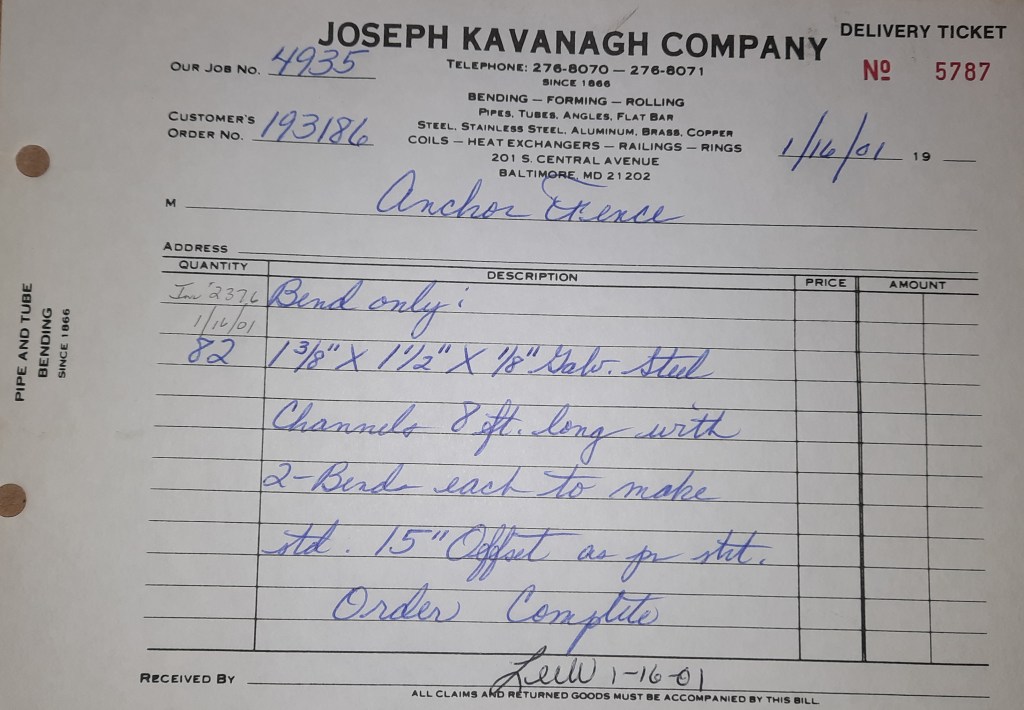 JOSEPH KAVANAGH COMPANY
DELIVERY TICKET
Nº 5787
OUR JOB NO. 4935
TELEPHONE: 276-8070 — 276-8071
SINCE 1866
BENDING — FORMING — ROLLING
PIPES, TUBES, ANGLES, FLAT BAR
STEEL, STAINLESS STEEL, ALUMINUM, BRASS, COPPER
COILS — HEAT EXCHANGERS — RAILINGS — RINGS
201 S. CENTRAL AVENUE
BALTIMORE, MD 21202
CUSTOMER'S
ORDER NO. 193186
1/16/01 19
M Anchor Fence
ADDRESS
QUANTITY DESCRIPTION PRICE AMOUNT
Inv 2376 Bend only:
1/16/01
82 1 3/8" X 1 1/2" X 1/8" Galv. Steel
Channels 8 ft. long with
2-Bends each to make
std. 15" Offset as pr
Order Complete
RECEIVED BY 1-16-01
ALL CLAIMS AND RETURNED GOODS MUST BE ACCOMPANIED BY THIS BILL
PIPE AND TUBE
BENDING
SINCE 1866